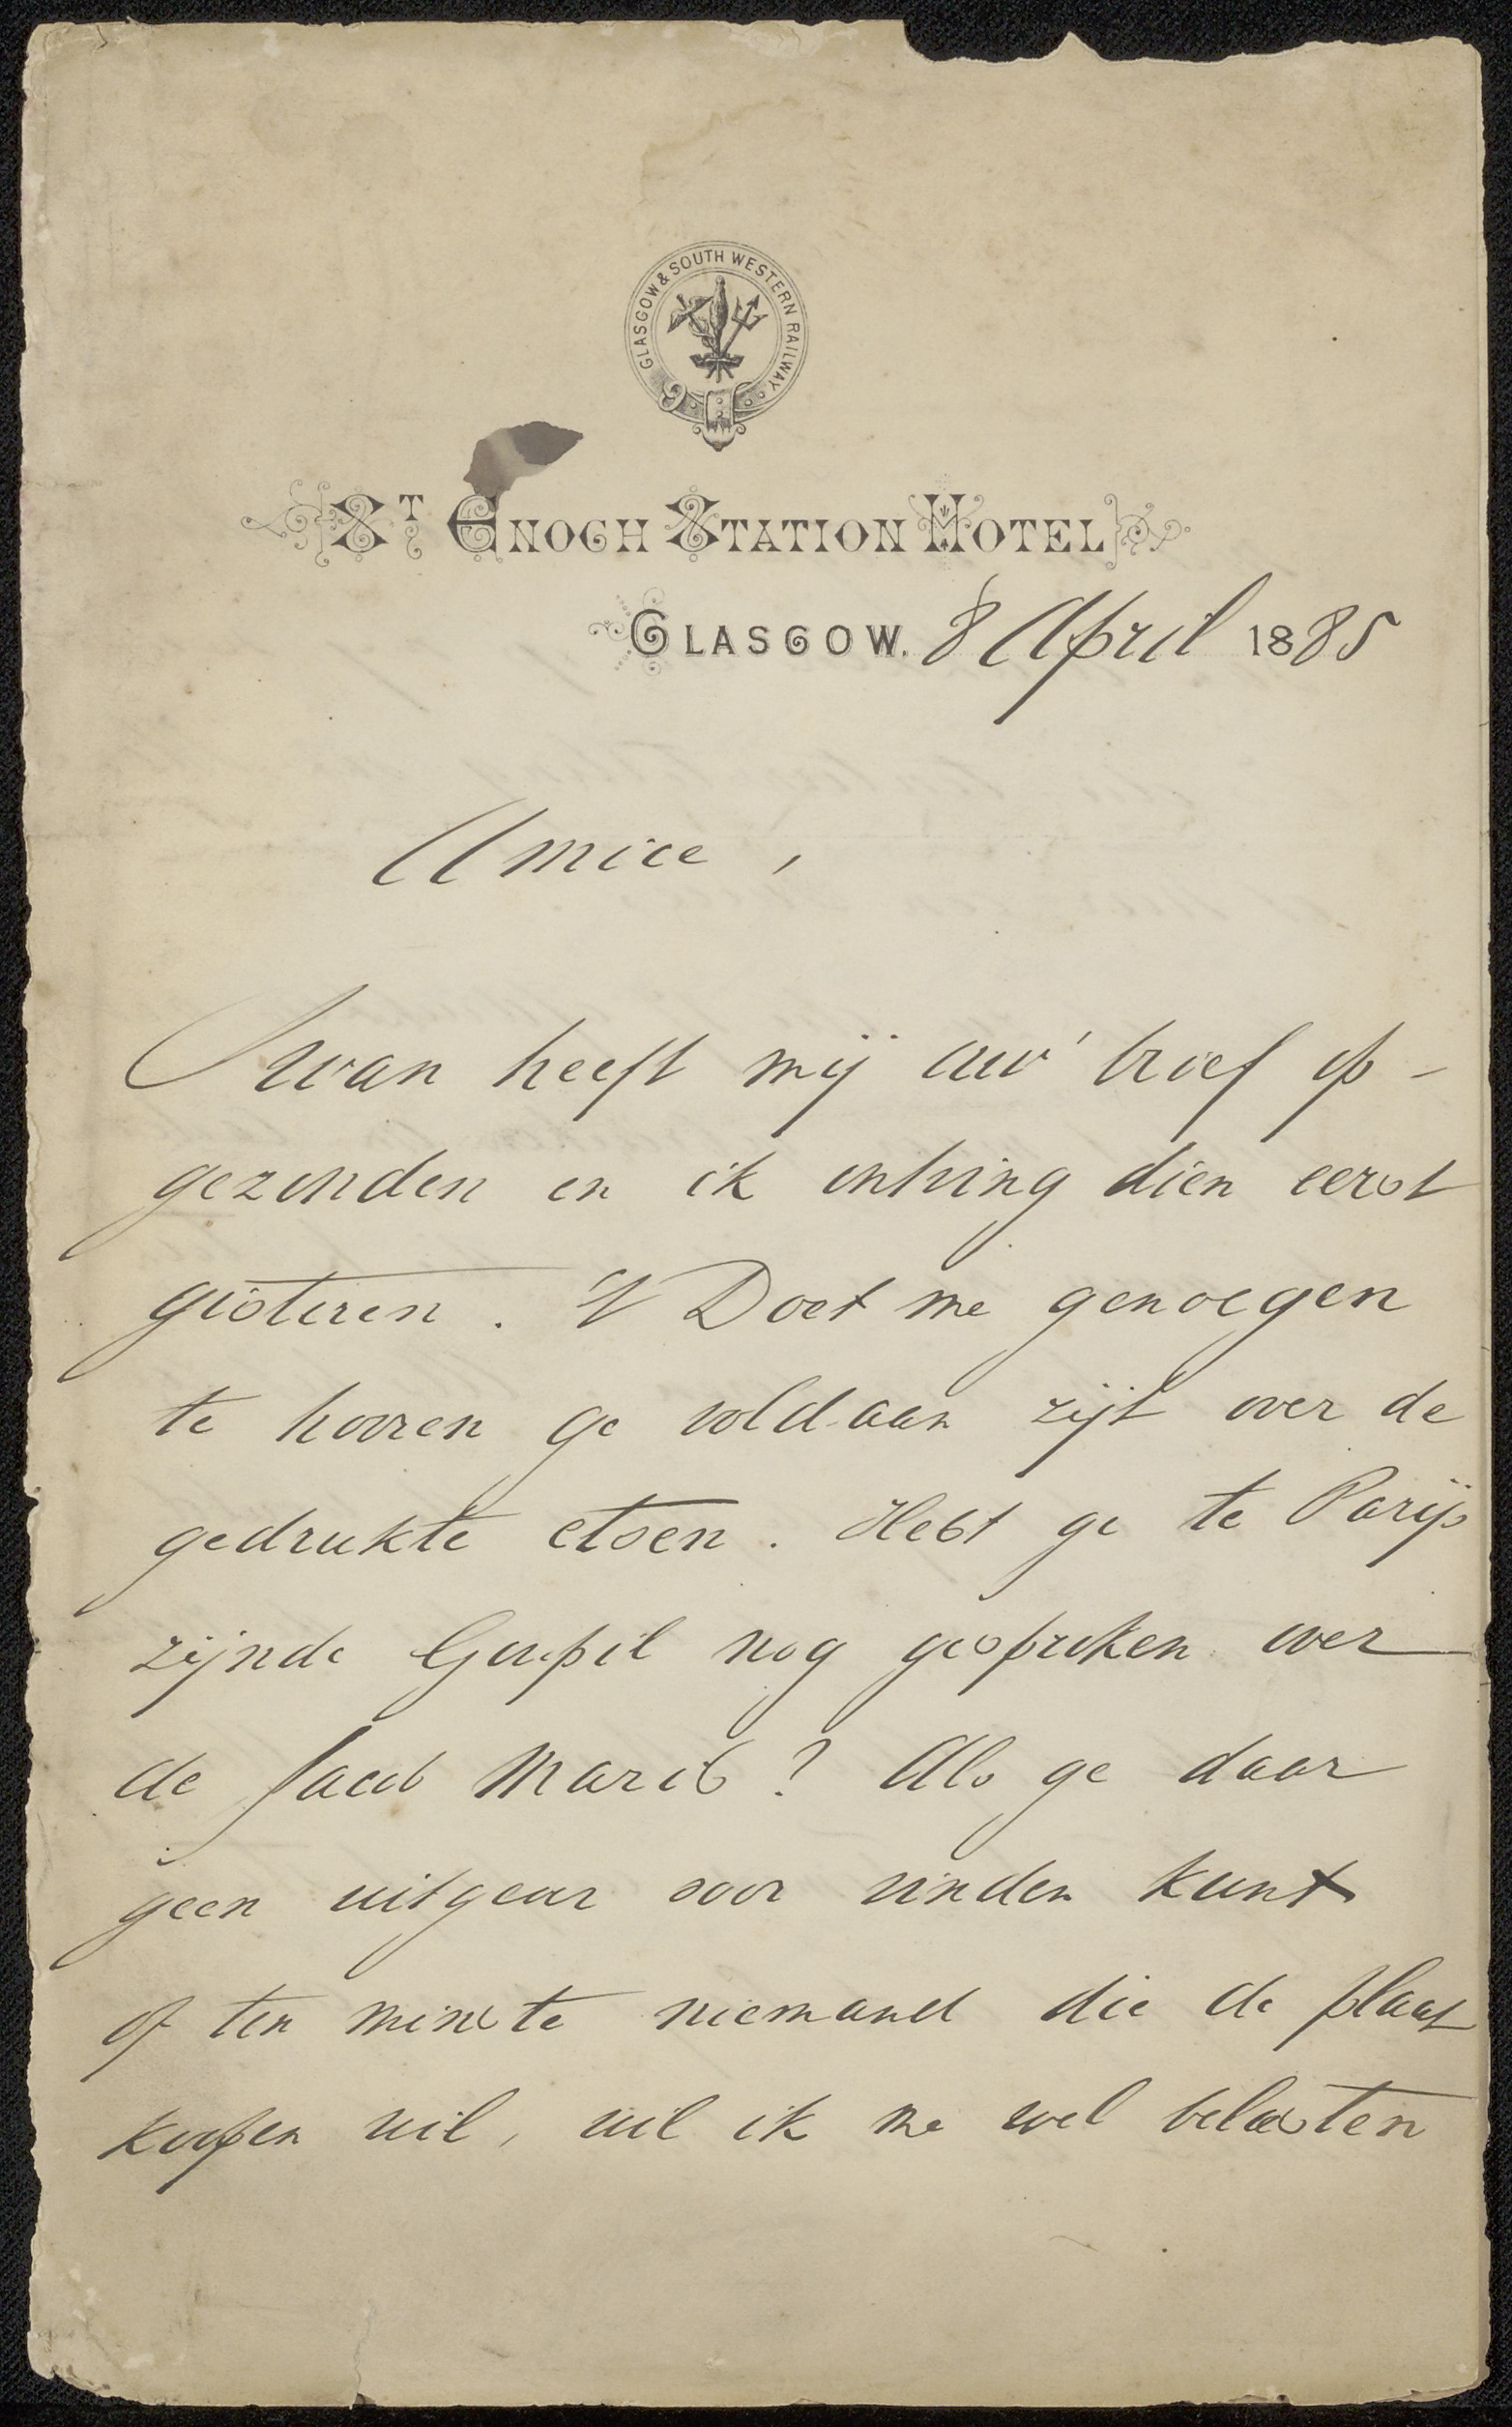 GLASGOW & SOUTH WESTERN RAILWAY
ST ENOCH STATION HOTEL
GLASGOW. 8 April 1885
Amice,
Swan heeft mij uw' brief op-
gezonden en ik ontving dien eerst
gisteren. 't Doet me genoegen
te hooren ge voldaan zijt over de
gedrukte etsen. Hebt ge te Parijs
zijnde Goupil nog gesproken over
de Jacob Maris? Als ge daar
geen uitgever voor vinden kunt
of ten minste niemand die de plaat
koopen wil, wil ik me wel belasten